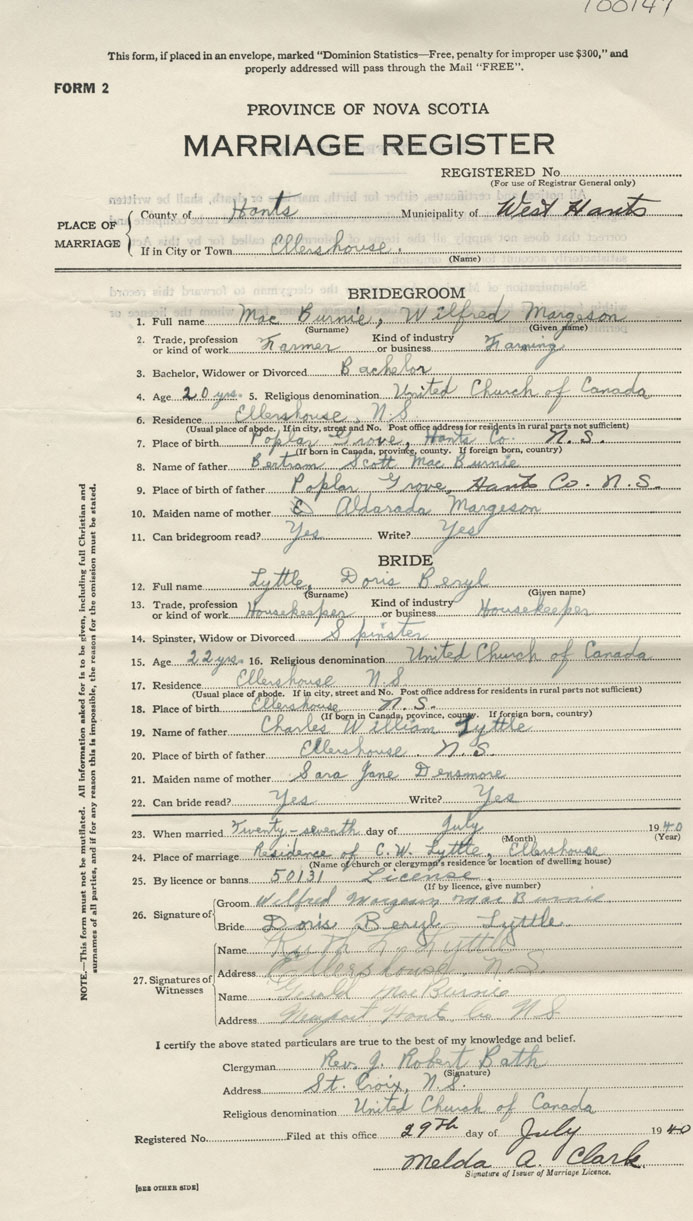 100147
This form, if placed in an envelope, marked "Dominion Statistics—Free, penalty for improper use $300," and
properly addressed will pass through the Mail "FREE".
FORM 2
PROVINCE OF NOVA SCOTIA
MARRIAGE REGISTER
REGISTERED No.
(For use of Registrar General only)
PLACE OF MARRIAGE
County of Hants Municipality of West Hants
If in City or Town Ellershouse.
(Name)
BRIDEGROOM
1. Full name Mac Burnie, Wilfred Margeson
(Surname) (Given name)
2. Trade, profession or kind of work Farmer Kind of industry or business Farming
3. Bachelor, Widower or Divorced Bachelor
4. Age 20 yrs. 5. Religious denomination United Church of Canada
6. Residence Ellershouse, N.S
(Usual place of abode. If in city, street and No. Post office address for residents in rural parts not sufficient)
7. Place of birth Poplar Grove, Hants Co. N.S.
(If born in Canada, province, county. If foreign born, country)
8. Name of father Bertram Scott Mac Burnie
9. Place of birth of father Poplar Grove, Hants Co. N.S.
10. Maiden name of mother Aldarada Margeson
11. Can bridegroom read? Yes Write? Yes
BRIDE
12. Full name Lyttle, Doris Beryl
(Surname) (Given name)
13. Trade, profession or kind of work Housekeeper Kind of industry or business Housekeeper
14. Spinster, Widow or Divorced Spinster
15. Age 22 yrs. 16. Religious denomination United Church of Canada
17. Residence Ellershouse N.S
(Usual place of abode. If in city, street and No. Post office address for residents in rural parts not sufficient)
18. Place of birth Ellershouse N.S.
(If born in Canada, province, county. If foreign born, country)
19. Name of father Charles William Lyttle
20. Place of birth of father Ellershouse. N.S.
21. Maiden name of mother Sara Jane Densmore
22. Can bride read? Yes Write? Yes
23. When married Twenty-seventh day of July 1940
(Month) (Year)
24. Place of marriage Residence of C.W. Lyttle, Ellershouse
(Name of church or clergyman's residence or location of dwelling house)
25. By licence or banns 50131 License.
(If by licence, give number)
26. Signature of
Groom Wilfred Margeson Mac Burnie
Bride Doris Beryl Lyttle
27. Signatures of Witnesses
Name Lyttle
Address Ellershouse, N.S.
Name Gerald MacBurnie
Address Newport Hants Co N.S
I certify the above stated particulars are true to the best of my knowledge and belief.
Clergyman Rev. J. Robert Bath
(Signature)
Address St. Croix, N.S.
Religious denomination United Church of Canada
Registered No. Filed at this office 29th day of July 1940
Melda A. Clark
Signature of Issuer of Marriage Licence.
[SEE OTHER SIDE]
NOTE.—This form must not be mutilated. All information asked for is to be given, including full Christian and
surnames of all parties, and if for any reason this is impossible, the reason for the omission must be stated.